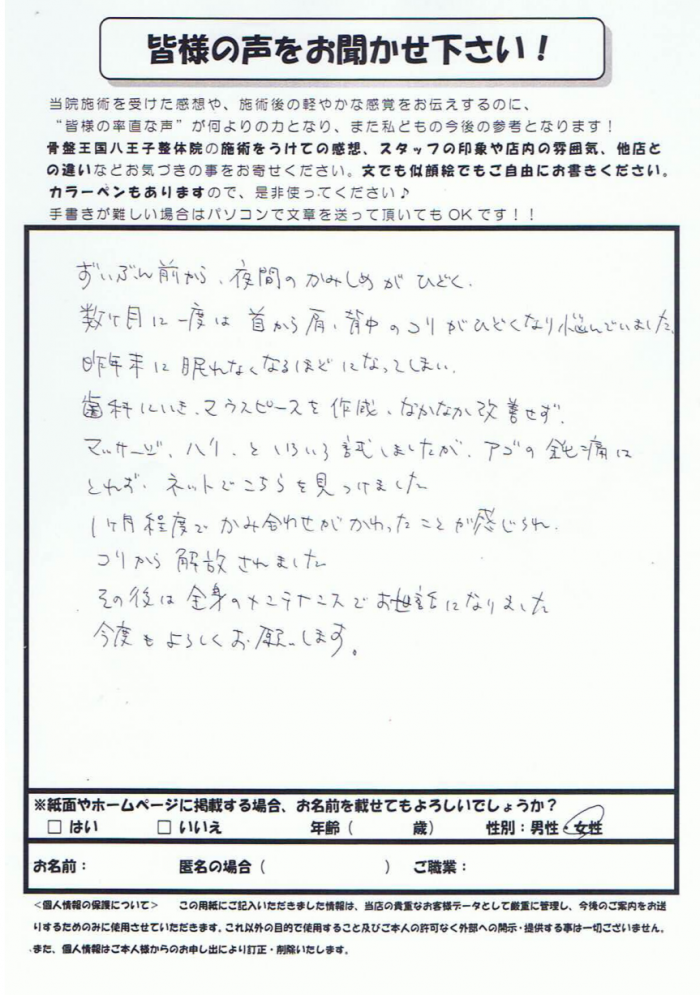 皆様の声をお聞かせ下さい！
当院施術を受けた感想や、施術後の軽やかな感覚をお伝えするのに、
“皆様の率直な声”が何よりの力となり、また私どもの今後の参考となります！
骨盤王国八王子整体院の施術をうけての感想、スタッフの印象や店内の雰囲気、他店と
の違いなどお気づきの事をお寄せください。文でも似顔絵でもご自由にお書きください。
カラーペンもありますので、是非使ってください♪
手書きが難しい場合はパソコンで文章を送って頂いてもOKです！！
ずいぶん前から、夜間のかみしめがひどく、
数ヶ月に一度は首から肩、背中のコリがひどくなり悩んでいました。
昨年末に眠れなくなるほどになってしまい、
歯科にいき、マウスピースを作成、なかなか改善せず、
マッサージ、ハリ、といろいろ試しましたが、アゴの鈍痛は
とれず、ネットでこちらを見つけました
1ヶ月程度でかみ合わせがかわったことが感じられ、
コリから解放されました
その後は全身のメンテナンスでお世話になりました
今度もよろしくお願いします。
※紙面やホームページに掲載する場合、お名前を載せてもよろしいでしょうか？
□ はい □ いいえ 年齢（ 歳） 性別：男性・女性
お名前： 匿名の場合（ ） ご職業：
＜個人情報の保護について＞ この用紙にご記入いただきました情報は、当店の貴重なお客様データとして厳重に管理し、今後のご案内をお送
りするためのみに使用させていただきます。これ以外の目的で使用すること及びご本人の許可なく外部への開示・提供する事は一切ございません。
また、個人情報はご本人様からのお申し出により訂正・削除いたします。